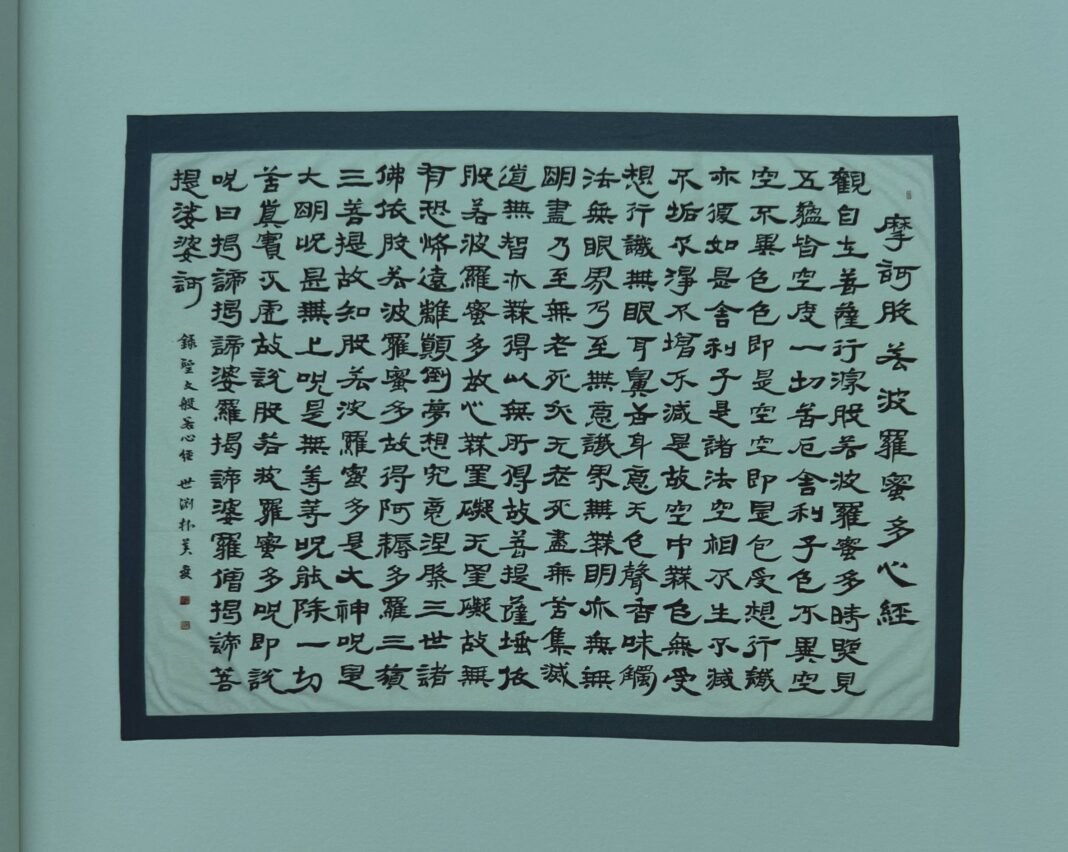 摩訶般若波羅蜜多心經
觀自在菩薩行深般若波羅蜜多時照見
五蘊皆空度一切苦厄舍利子色不異空
空不異色色即是空空即是色受想行識
亦復如是舍利子是諸法空相不生不滅
不垢不淨不增不減是故空中無色無受
想行識無眼耳鼻舌身意无色聲香味觸
法無眼界乃至無意識界無無明亦無無
明盡乃至無老死亦无老死盡無苦集滅
道無智亦無得以無所得故菩提薩埵依
般若波羅蜜多故心無罣礙无罣礙故無
有恐怖遠離顛倒夢想究竟涅槃三世諸
佛依般若波羅蜜多故得阿耨多羅三藐
三菩提故知般若波羅蜜多是大神呪是
大明呪是無上呪是無等等呪能除一切
苦真實不虛故說般若波羅蜜多呪即說
呪曰揭諦揭諦婆羅揭諦婆羅僧揭諦菩
提婆婆訶
錄聖文般若心經 世渕朴英